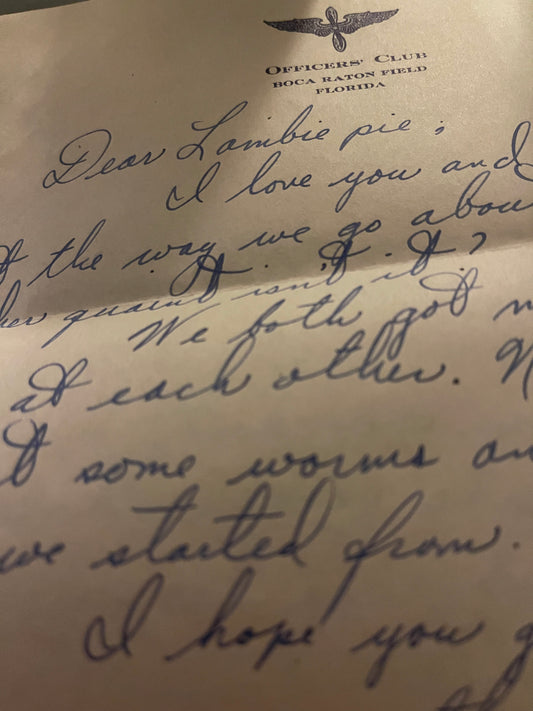 OFFICERS' CLUB
BOCA RATON FIELD
FLORIDA
Dear Lambie pie;
I love you and
the way we go abou
her quaint isn't it?
We both got m
at each other. N
some worms an
we started from.
I hope you g